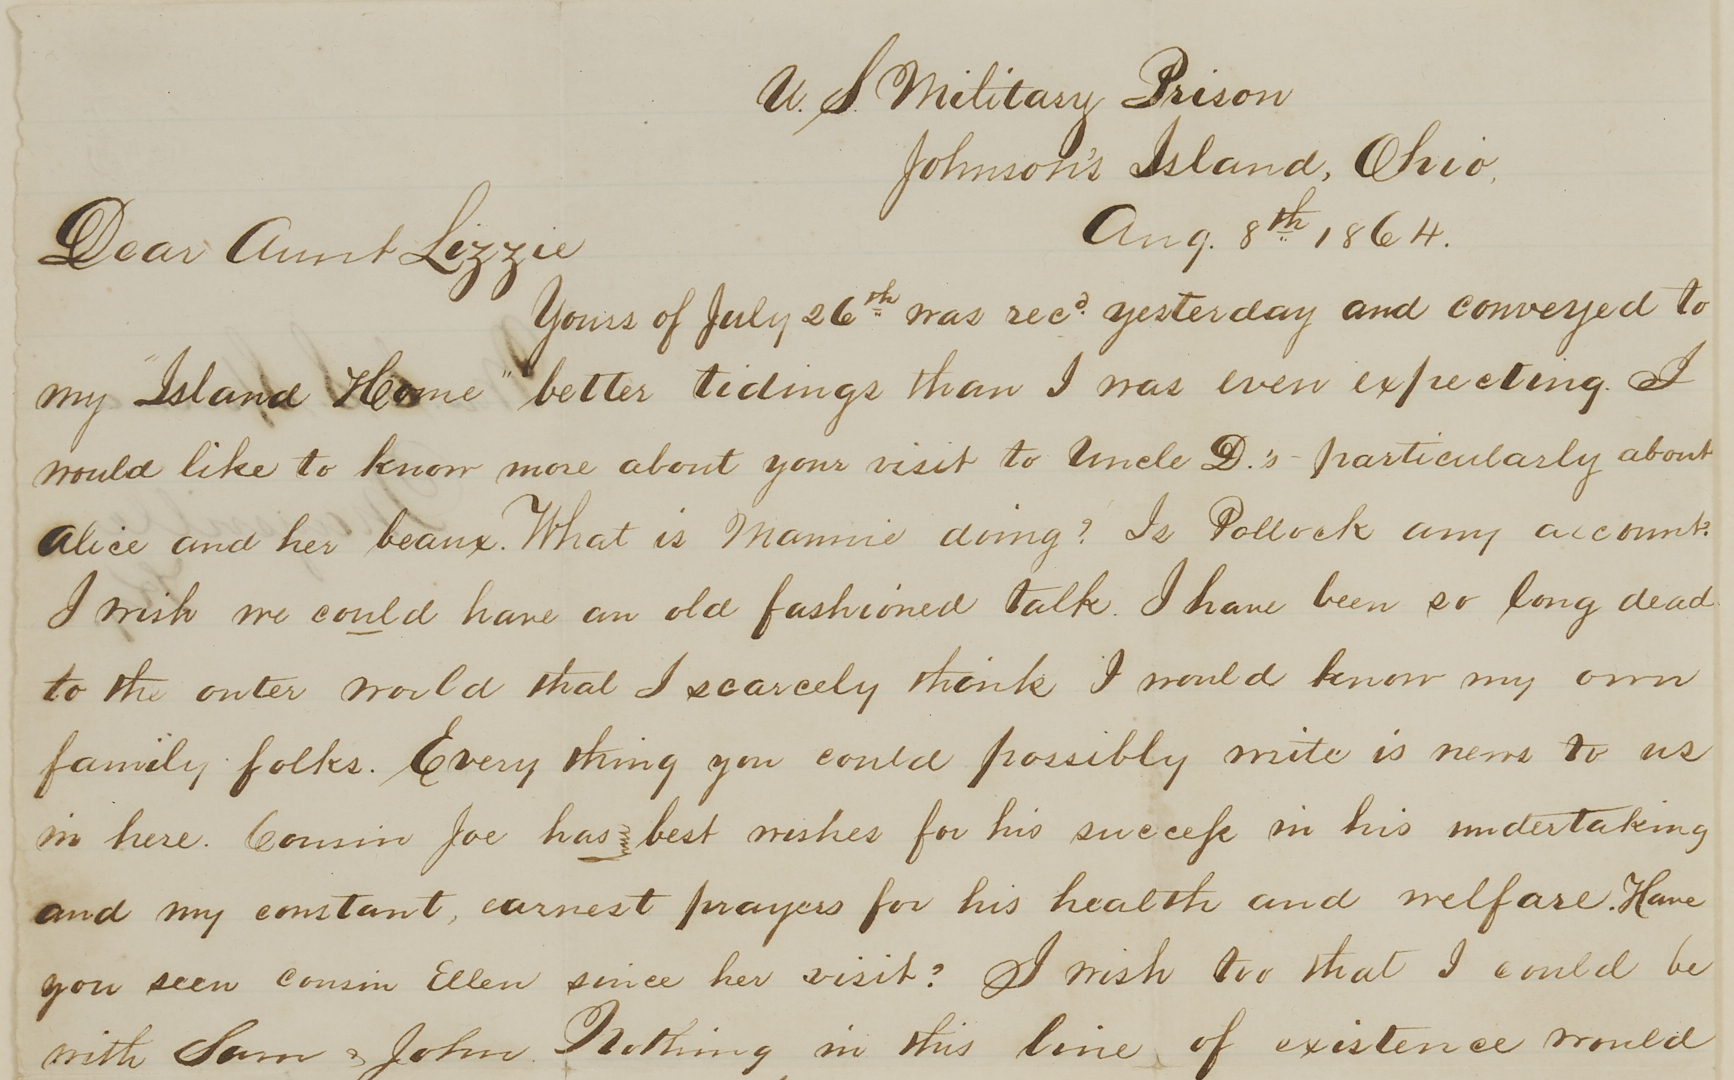 U. S. Military Prison
Johnson's Island, Ohio,
Aug. 8th 1864.
Dear Aunt Lizzie
Yours of July 26th was recd. yesterday and conveyed to
my "Island Home" better tidings than I was even expecting. I
would like to know more about your visit to Uncle D.'s - particularly about
Alice and her beaux. What is Mannie doing? Is Pollock any account?
I wish we could have an old fashioned talk. I have been so long dead
to the outer world that I scarcely think I would know my own
family folks. Every thing you could possibly write is news to us
in here. Cousin Joe has my best wishes for his success in his undertaking
and my constant, earnest prayers for his health and welfare. Have
you seen cousin Ellen since her visit? I wish too that I could be
with Sam & John. Nothing in this line of existence would